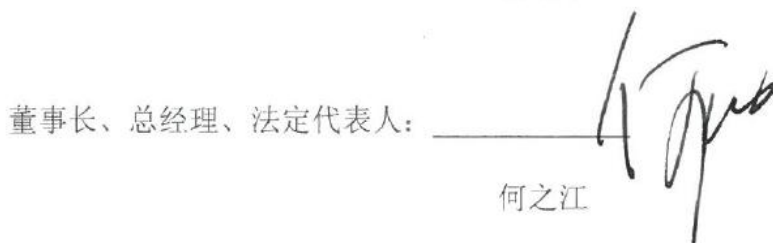 董事长、总经理、法定代表人：
何之江